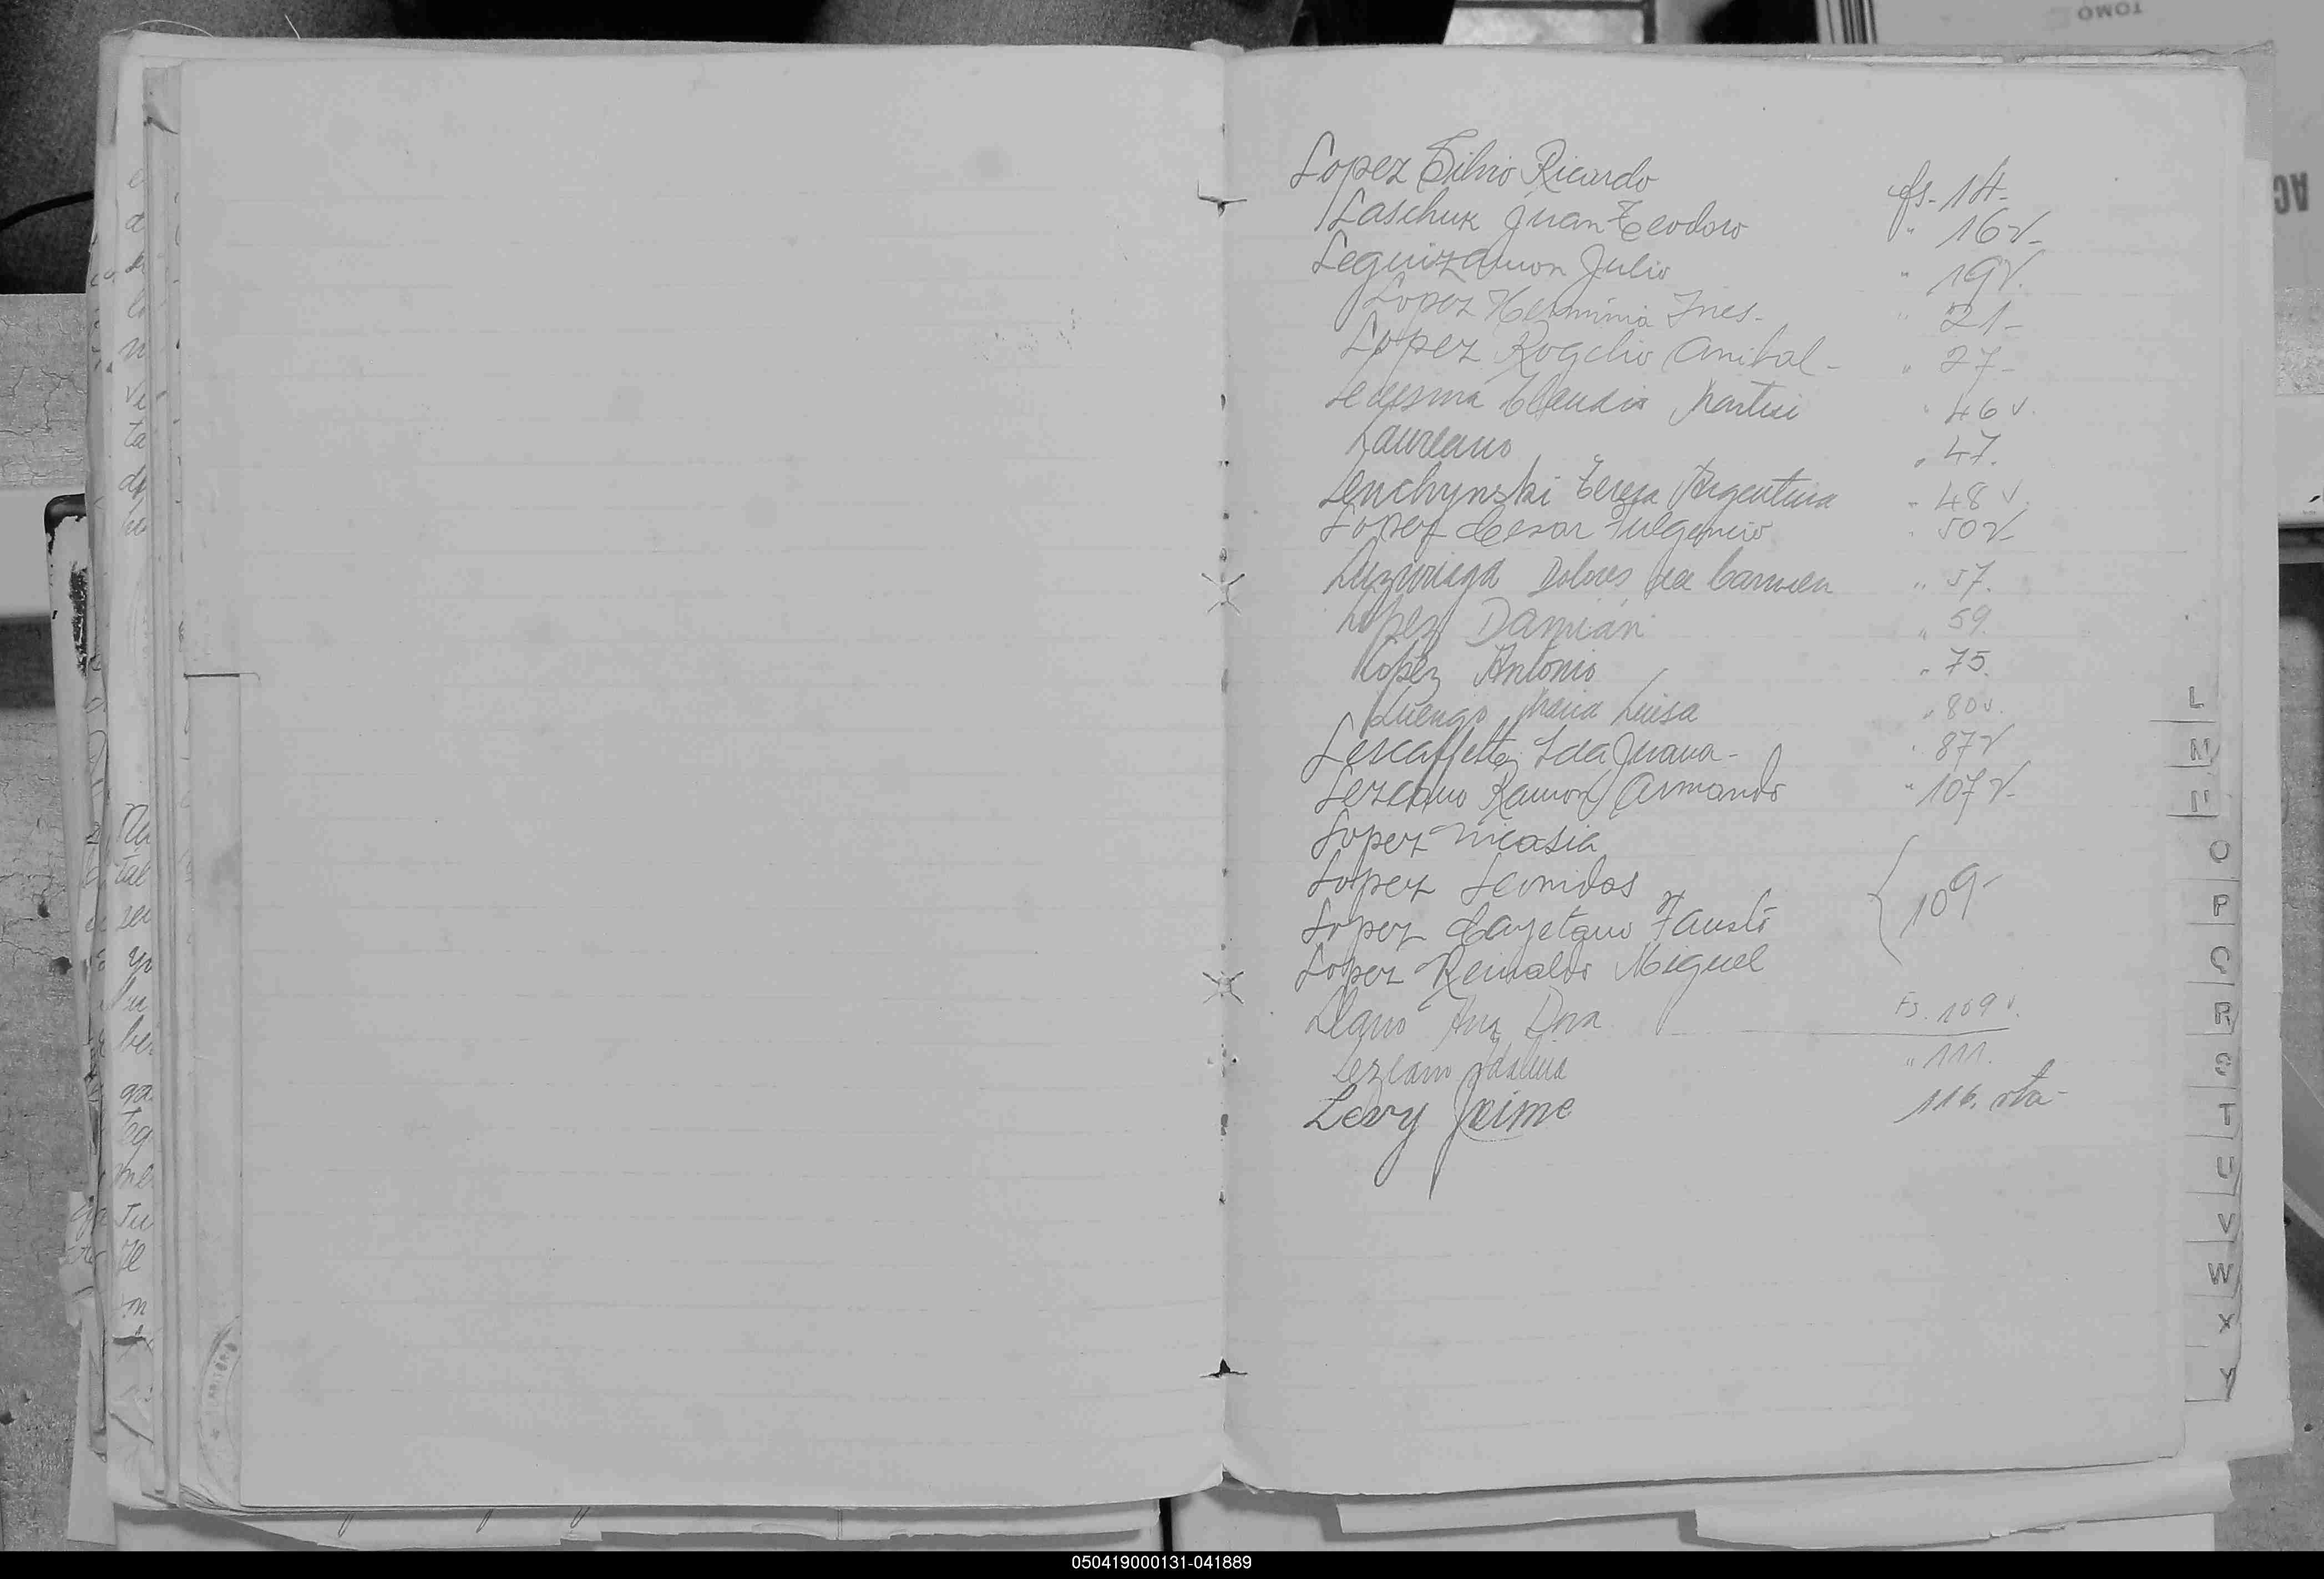 TOMO
Lopez Silvio Ricardo fs. 14-
Laschuk Juan Teodoro " 16v-
Leguizamon Julio " 19v.
Lopez Herminia Ines- " 21-
Lopez Rogelio Anibal- " 27-
Ledesma Claudia " 46v.
Laureano " 47.
Lenchynski Teresa Argentina " 48v.
Lopez Cesar Fulgencio " 50v-
Luzuriaga Dolores del Carmen " 57.
Lopez Damián " 59.
Lopez Antonio " 75.
Luengo Maria Luisa " 80v.
Lescaffette Ida Juana- " 87v
Lezcano Ramon Armando " 107v-
Lopez Nicasia
Lopez Leonidas
109-
Lopez Cayetano Fausto
Lopez Reinaldo Miguel
Llano Ana Dora Fs. 109v.
Lezcano Idalina " 111.
Levy Jaime 116. vta-
L
M
N
O
P
Q
R
S
T
U
V
W
X
Y
050419000131-041889